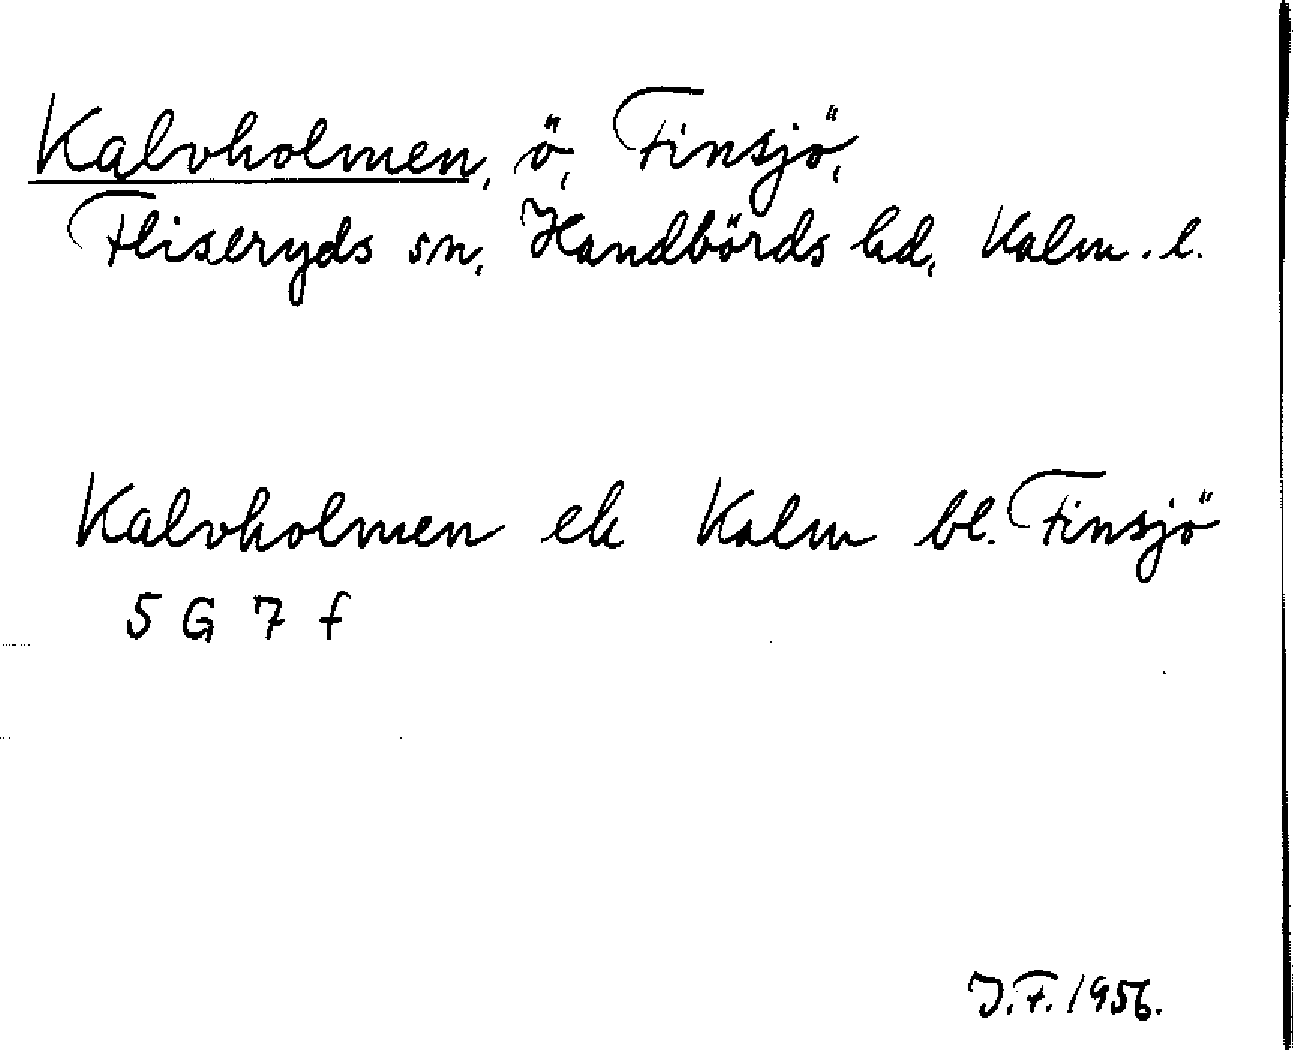 Kalvholmen, ö, Finsjö,
Fliseryds sn, Handbörds hd, Kalm. l.
Kalvholmen ek Kalm bl. Finsjö
5 G 7 f
J.F. 1956.